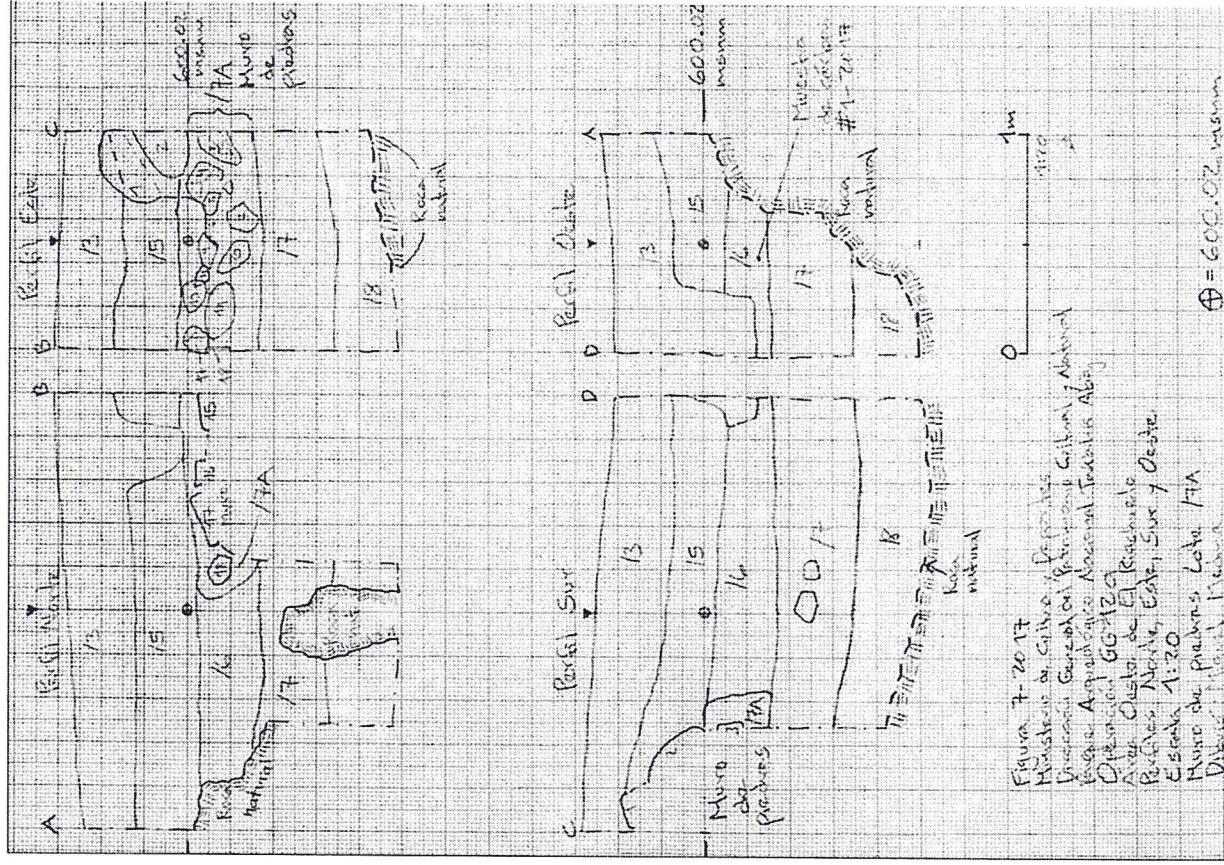 Perfil Norte
A
B
13
15
16
17
18
17 muro
16
15
17A
Roca natural
Perfil Este
B
C
13
2
15
17
18
Roca
natural
600.02
msnm
17A
Muro
de
piedras
Perfil Sur
C
D
2
13
15
16
17A
17
18
Muro
de
piedras
Roca
natural
Perfil Oeste
D
A
13
15
16
17
18
600.02
msnm
Muestra
de carbón
#1-2017
Roca
natural
0
1m
Figura 7-2017
Ministerio de Cultura y Deportes
Dirección General del Patrimonio Cultural y Natural
Parque Arqueológico Nacional Tak'alik Ab'aj
Operación GG-12
Area Oeste de El Riachuelo
Perfiles Norte, Este, Sur y Oeste
Escala 1:20
Muro de piedras Lote 17A
Dibujó:
⊕ = 600.02 msnm